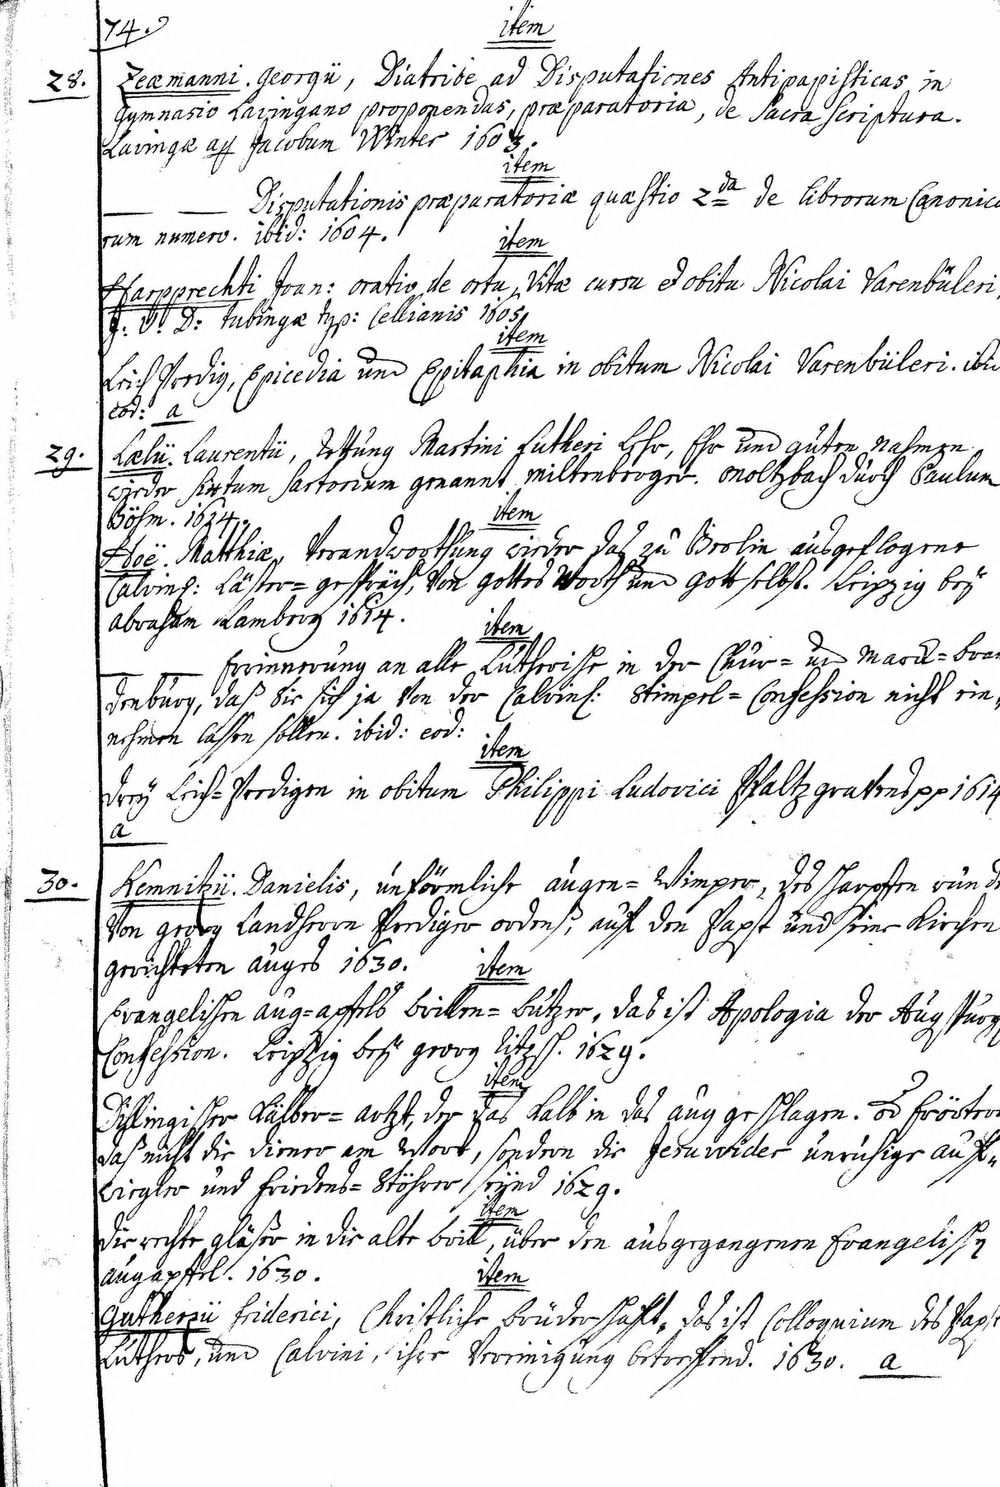 74.
item
28. Zeæmanni. Georgii, Diatribe ad Disputationes Antipapisticas, in
Gymnasio Lavingano proponendas, præparatoria, de Sacra Scriptura.
Lavingæ ap Jacobum Winter 1603.
item
— — Disputationis præparatoriæ quæstio 2da de librorum Canonico
rum numero. ibid: 1604.
item
Harpprechti Joan: oratio de ortu, Vitæ cursu et obitu Nicolai Varenbüleri,
J. V. D. tubingæ typ: Cellianis 1605.
item
Leich Predig, Epicedia und Epitaphia in obitum Nicolai Varenbüleri. ibid
eod: a
29. Lælii. Laurentii, Rettung Martini Lutheri Lehr, Ehr und guten Nahmen
wieder Sixtum Sartorium genannt Miltenberger. Onoltzbach durch Paulum
Böhm. 1614.
item
Hoë. Matthiæ, Verandworthung wieder das zu Berlin ausgeflogene
Calvins: Läster-gespräch, Von Gottes Worth und Gott selbst. Leipzig bey
Abraham Lamberg 1614.
item
— Erinnerung an alle Lutherische in der Chur- und Marck-bran
denburg, daß Sie sich ja von der Calvins: Stimpel-Confession nicht ein,,
nehmen lassen sollen. ibid: eod:
item
drey Leich-Predigen in obitum Philippi Ludovici Pfaltzgravens pp 1614
a
30. Kemnitzii. Danielis, unförmliche augen-Wimper, des scharpffen runde
Von Georg Landherrn Prediger ordens, auf den Papst und seine Kirchen
gerichteten auges 1630.
item
Evangelischen aug-apfels brillen-butzer, das ist Apologia der Augspurg
Confession. Leipzig bey Georg Ritzsch. 1629.
item
Dillingischer Kälber-artzt, der das Kalb in das aug geschlagen. Erörter
daß nicht die diener am Wort, sondern die Jesuwider unruhige auf,,
wiegler und Friedens-Stöhrer seynd 1629.
item
die rechte gläser in die alte brill, über den ausgegangenen Evangelischen
augapffel. 1630.
item
Friderici, Christliche bruderschafft, das ist Colloquium des Papst
Luthers, und Calvini, ihre Vereinigung betreffend. 1630. a